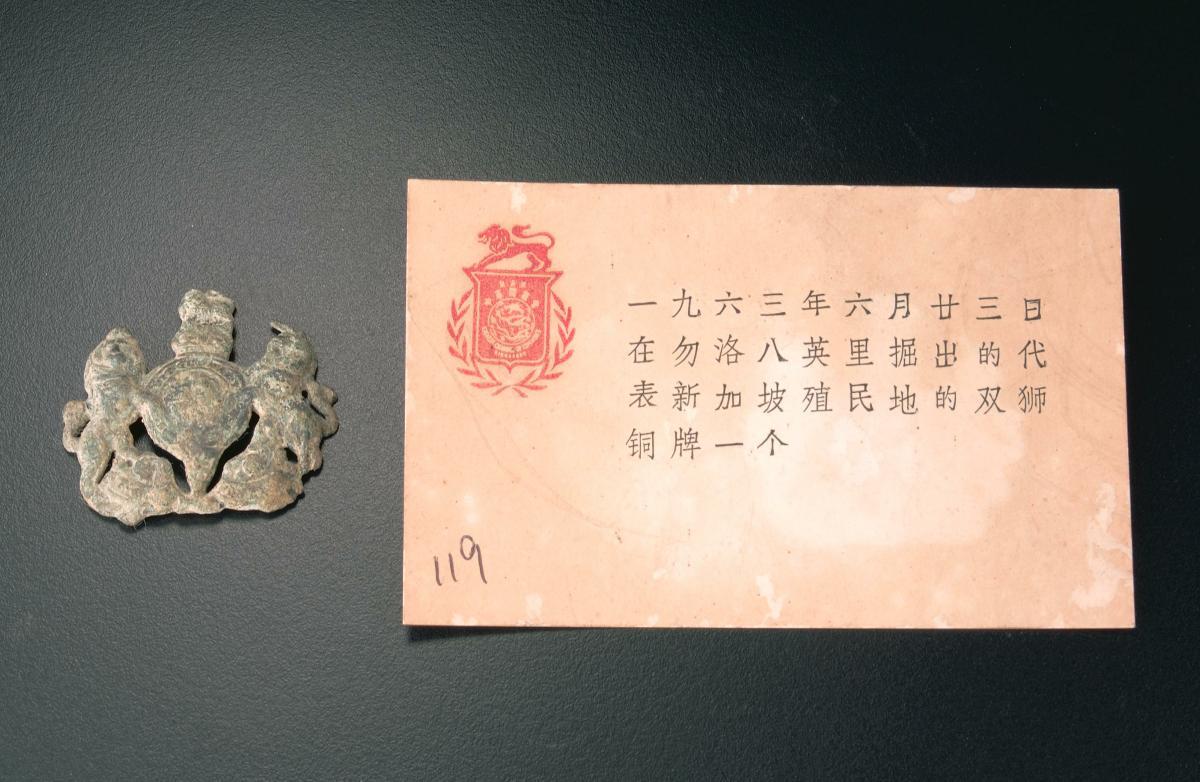 一九六三年六月廿三日
在勿洛八英里掘出的代
表新加坡殖民地的双狮
铜牌一个
119